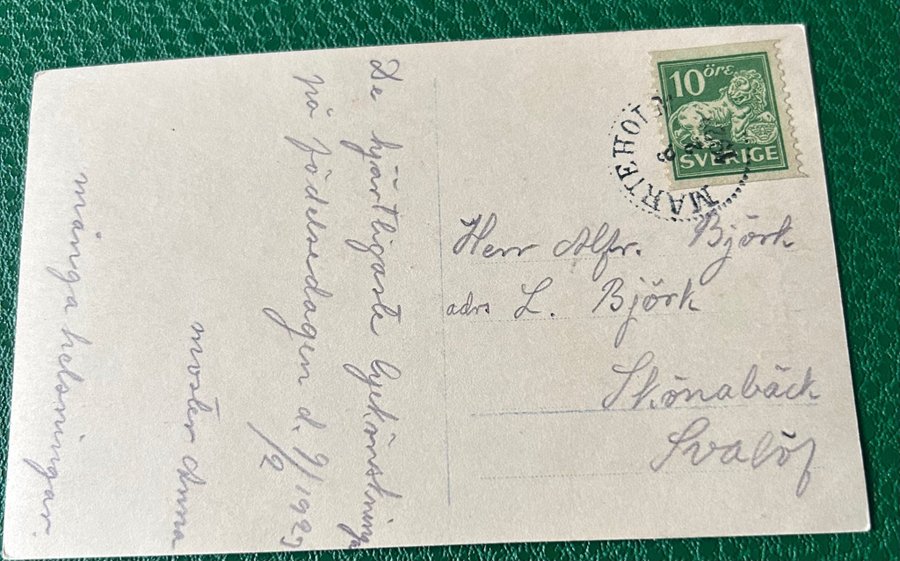 De hjärtligaste lyckönskning
på födelsedagen d. 9/2 1929
moster Anna
många helsningar.
10 öre
SVERIGE
MARIEHOLM
Herr Alfr. Björk
adrs L. Björk
Skönabäck
Svalöf